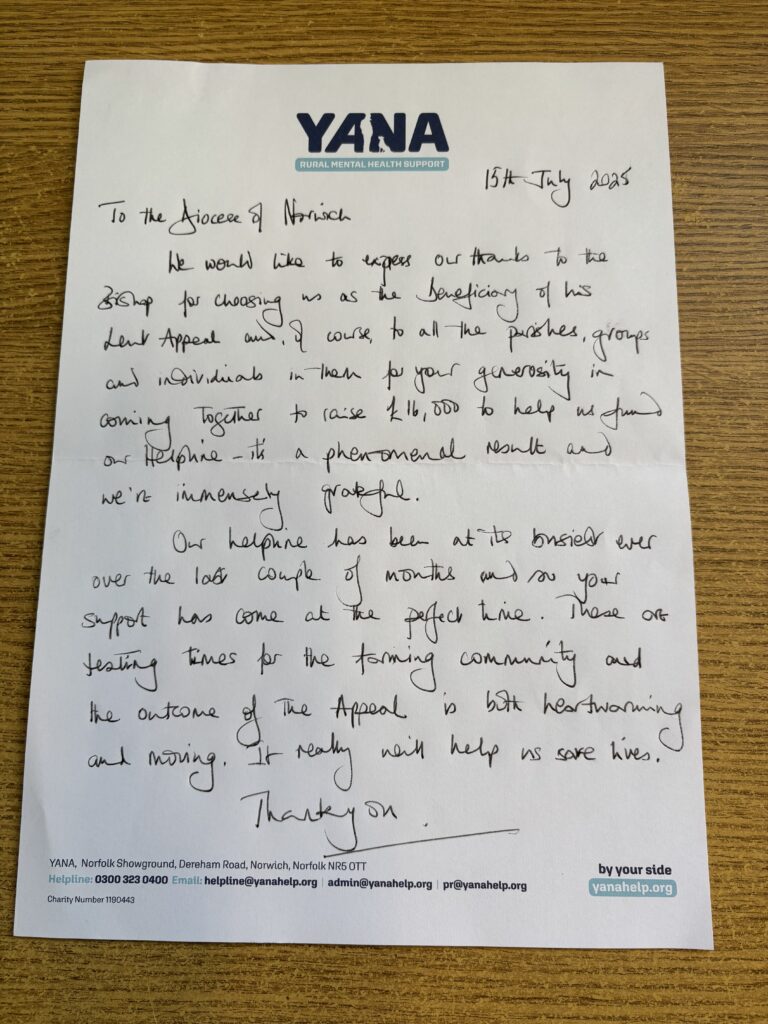 YANA
RURAL MENTAL HEALTH SUPPORT
15th July 2025
To the Diocese of Norwich
We would like to express our thanks to the
Bishop for choosing us as the beneficiary of his
Lent Appeal and, of course, to all the parishes, groups
and individuals in them for your generosity in
coming together to raise £16,000 to help us fund
our Helpline – it's a phenomenal result and
we're immensely grateful.
Our helpline has been at its busiest ever
over the last couple of months and so your
support has come at the perfect time. These are
testing times for the farming community and
the outcome of the Appeal is both heartwarming
and moving. It really will help us save lives.
Thank you.
YANA, Norfolk Showground, Dereham Road, Norwich, Norfolk NR5 0TT
Helpline: 0300 323 0400 Email: helpline@yanahelp.org | admin@yanahelp.org | pr@yanahelp.org
Charity Number 1190443
by your side
yanahelp.org